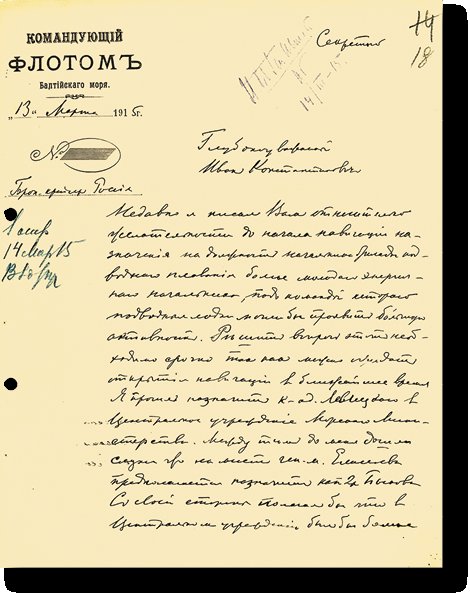 КОМАНДУЮЩІЙ
ФЛОТОМЪ
Балтійскаго моря.
„13" Марта 1915 г.
№
Брон. крейсер Россія
Секретно
14
18
14/III-15
14 Март 15
Глубокоуважаемый
Иван Константинович
Недавно я писал Вам относительно
желательности до начала навигации наз-
начения на должность начальника бригады под-
водного плавания более молодого энергич-
наго начальника под командой котораго
подводныя лодки могли бы проявить большую
активность. Решить вопрос этот необ-
ходимо срочно так как можно ожидать
открытия навигации в ближайшее время
Я просил назначить к-ад. Левицкаго в
Центральное учреждение Морского Мини-
стерства. Между тем до меня дошли
слухи что на место ген. м. Елисеева
предполагается назначить кап 2р
Со своей стороны полагал бы что в
Центральном учреждении был бы более